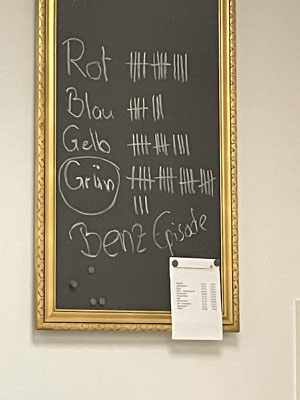 Rot 𝍸 𝍸 ||||
Blau 𝍸 |||
Gelb 𝍸 𝍸 |||
Grün 𝍸 𝍸 𝍸 𝍸
|||
Benz Episode